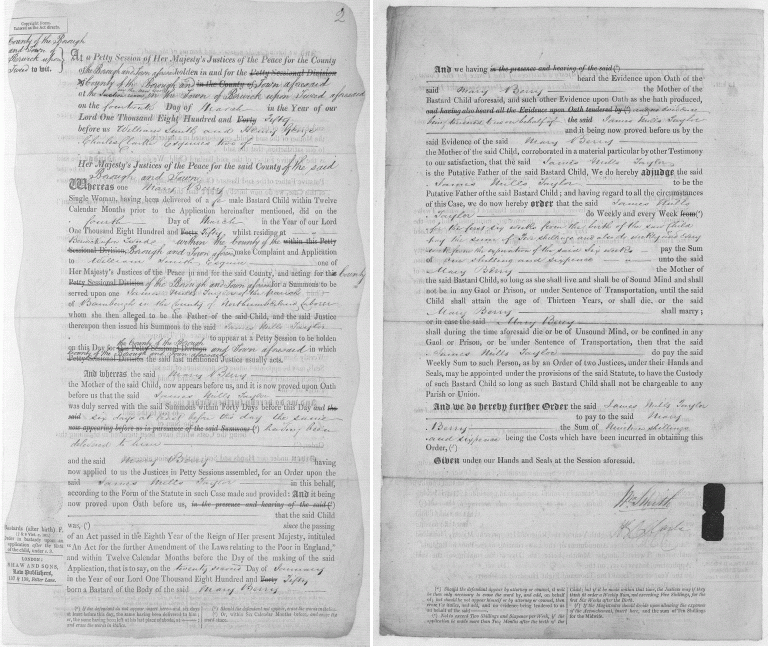 2
County of the Borough
and Town of
Berwick upon
Tweed to wit.
At a Petty Session of Her Majesty's Justices of the Peace for the County
of the Borough and Town aforesaid holden in and for the Petty Sessional Division
of County of the Borough and in the County of Town aforesaid
at the in the Town of Berwick upon Tweed aforesaid
on the fourteenth Day of March in the Year of our
Lord One Thousand Eight Hundred and Forty Fifty
before us William Smith and Henry
Charles Clarke Esquires two of
Her Majesty's Justices of the Peace for the said County of the said
Borough and Town
Whereas one Mary Berry
Single Woman, having been delivered of a male Bastard Child within Twelve
Calendar Months prior to the Application hereinafter mentioned, did on the
fourth Day of March in the Year of our Lord
One Thousand Eight Hundred and Forty Fifty, whilst residing at
Berwick upon Tweed, within the County of the within this Petty
Sessional Division, Borough and Town aforesaid make Complaint and Application
to William Smith Esquire one of
Her Majesty's Justices of the Peace in and for the said County, and acting for the County
Petty Sessional Division of the Borough and Town aforesaid for a Summons to be
served upon one James Mills Taylor of the parish
of Bambrough in the County of Northumberland Laborer
whom she then alleged to be the Father of the said Child, and the said Justice
thereupon then issued his Summons to the said James Mills Taylor
to appear at a Petty Session to be holden
on this Day for the County of the Borough and Town aforesaid in which
Petty Sessional Division the said last mentioned Justice usually acts.
And whereas the said Mary Berry
the Mother of the said Child, now appears before us, and it is now proved upon Oath
before us that the said James Mills Taylor
was duly served with the said Summons within Forty Days before this Day and the
said six Days at least before this day the same
now appearing before us in pursuance of the said Summons (¹) having been
now and the said Mary Berry having
now applied to us the Justices in Petty Sessions assembled, for an Order upon the
said James Mills Taylor in this behalf,
according to the Form of the Statute in such Case made and provided: And it being
now proved upon Oath before us, in the presence and hearing of the said (²)
that the said Child
was, (³) since the passing
of an Act passed in the Eighth Year of the Reign of Her present Majesty, intituled
"An Act for the further Amendment of the Laws relating to the Poor in England,"
and within Twelve Calendar Months before the Day of the making of the said
Application, that is to say, on the twenty second Day of January
in the Year of our Lord One Thousand Eight Hundred and Forty Fifty
born a Bastard of the Body of the said Mary Berry
Bastards (after birth) F.
LONDON:
SHAW AND SONS,
Law Publishers,
137 & 138, Fetter Lane.
And we having in the presence and hearing of the said (²)
heard the Evidence upon Oath of the
said Mary Berry the Mother of the
Bastard Child aforesaid, and such other Evidence upon Oath as she hath produced,
and having also heard all the Evidence upon Oath tendered by (⁴)
being tendered on behalf of the said James Mills Taylor
and it being now proved before us by the
said Evidence of the said Mary Berry
the Mother of the said Child, corroborated in a material particular by other Testimony
to our satisfaction, that the said James Mills Taylor
is the Putative Father of the said Bastard Child, We do hereby adjudge the said
James Mills Taylor to be the
Putative Father of the said Bastard Child; and having regard to all the circumstances
of this Case, we do now hereby order that the said James Mills
Taylor do Weekly and every Week from (⁵)
for the first six weeks from the birth of the said Child
pay the sum of Two shillings and also do weekly and every
week from the expiration of the said six weeks pay the Sum
of one shilling and sixpence unto the said
Mary Berry the Mother of
the said Bastard Child, so long as she shall live and shall be of Sound Mind and shall
not be in any Gaol or Prison, or under Sentence of Transportation, until the said
Child shall attain the age of Thirteen Years, or shall die, or the said
Mary Berry shall marry;
or in case the said Mary Berry
shall during the time aforesaid die or be of Unsound Mind, or be confined in any
Gaol or Prison, or be under Sentence of Transportation, then that the said
James Mills Taylor do pay the said
Weekly Sum to such Person, as by an Order of two Justices, under their Hands and
Seals, may be appointed under the provisions of the said Statute, to have the Custody
of such Bastard Child so long as such Bastard Child shall not be chargeable to any
Parish or Union.
And we do hereby further Order the said James Mills Taylor
to pay to the said Mary
Berry the Sum of Nineteen shillings
and sixpence being the Costs which have been incurred in obtaining this
Order, (⁶)
Given under our Hands and Seals at the Session aforesaid.
Wm Smith